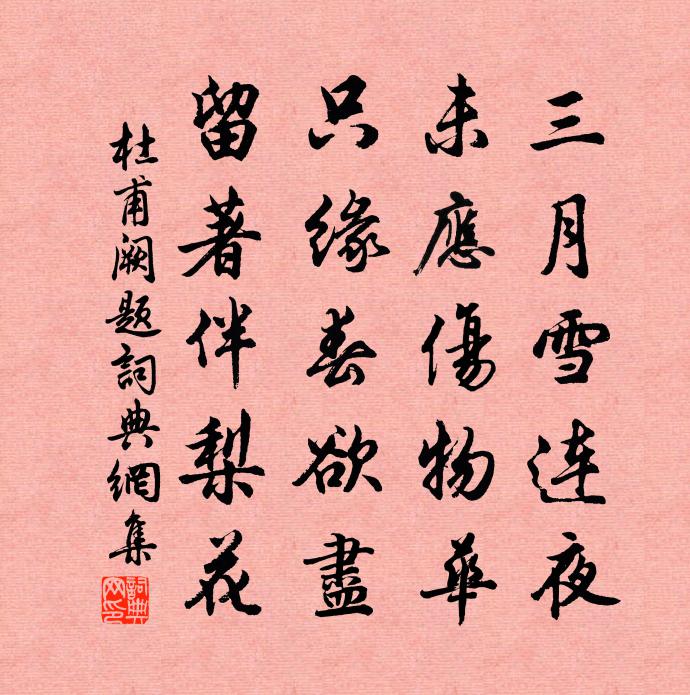 三月雪连夜
未應傷物華
只緣春欲盡
留著伴梨花
杜甫阙题詞典網集
詞典網印